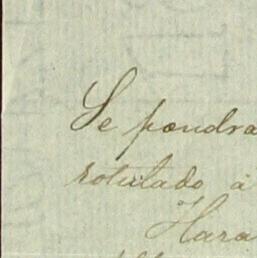 Se pondra
rotulado a
Hara